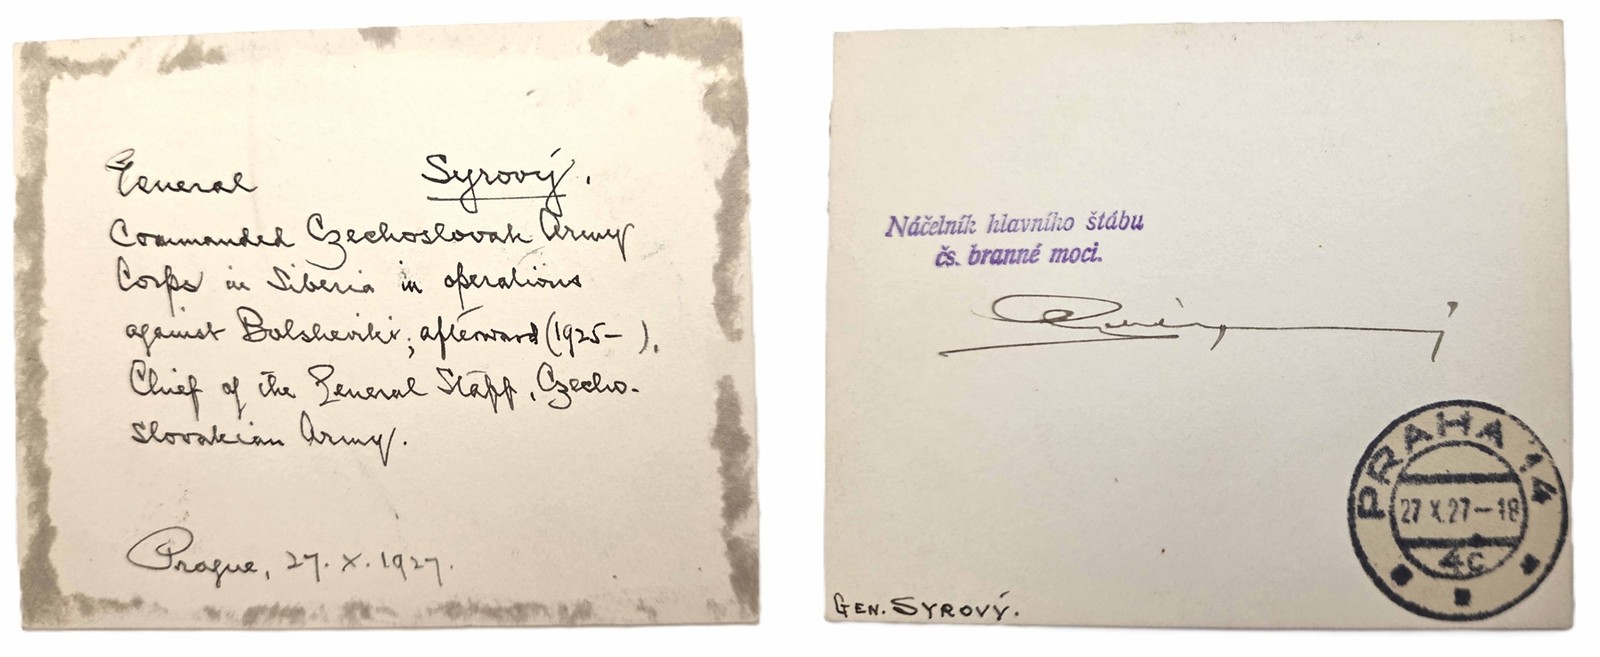 General Syrový.
Commanded Czechoslovak Army
Corps in Siberia in operations
against Bolsheviki; afterward (1925- ).
Chief of the General Staff, Czecho-
slovakian Army.
Prague, 27. X. 1927.
Náčelník hlavního štábu
čs. branné moci.
PRAHA 14
27 X.27-18
4c
GEN. SYROVÝ.